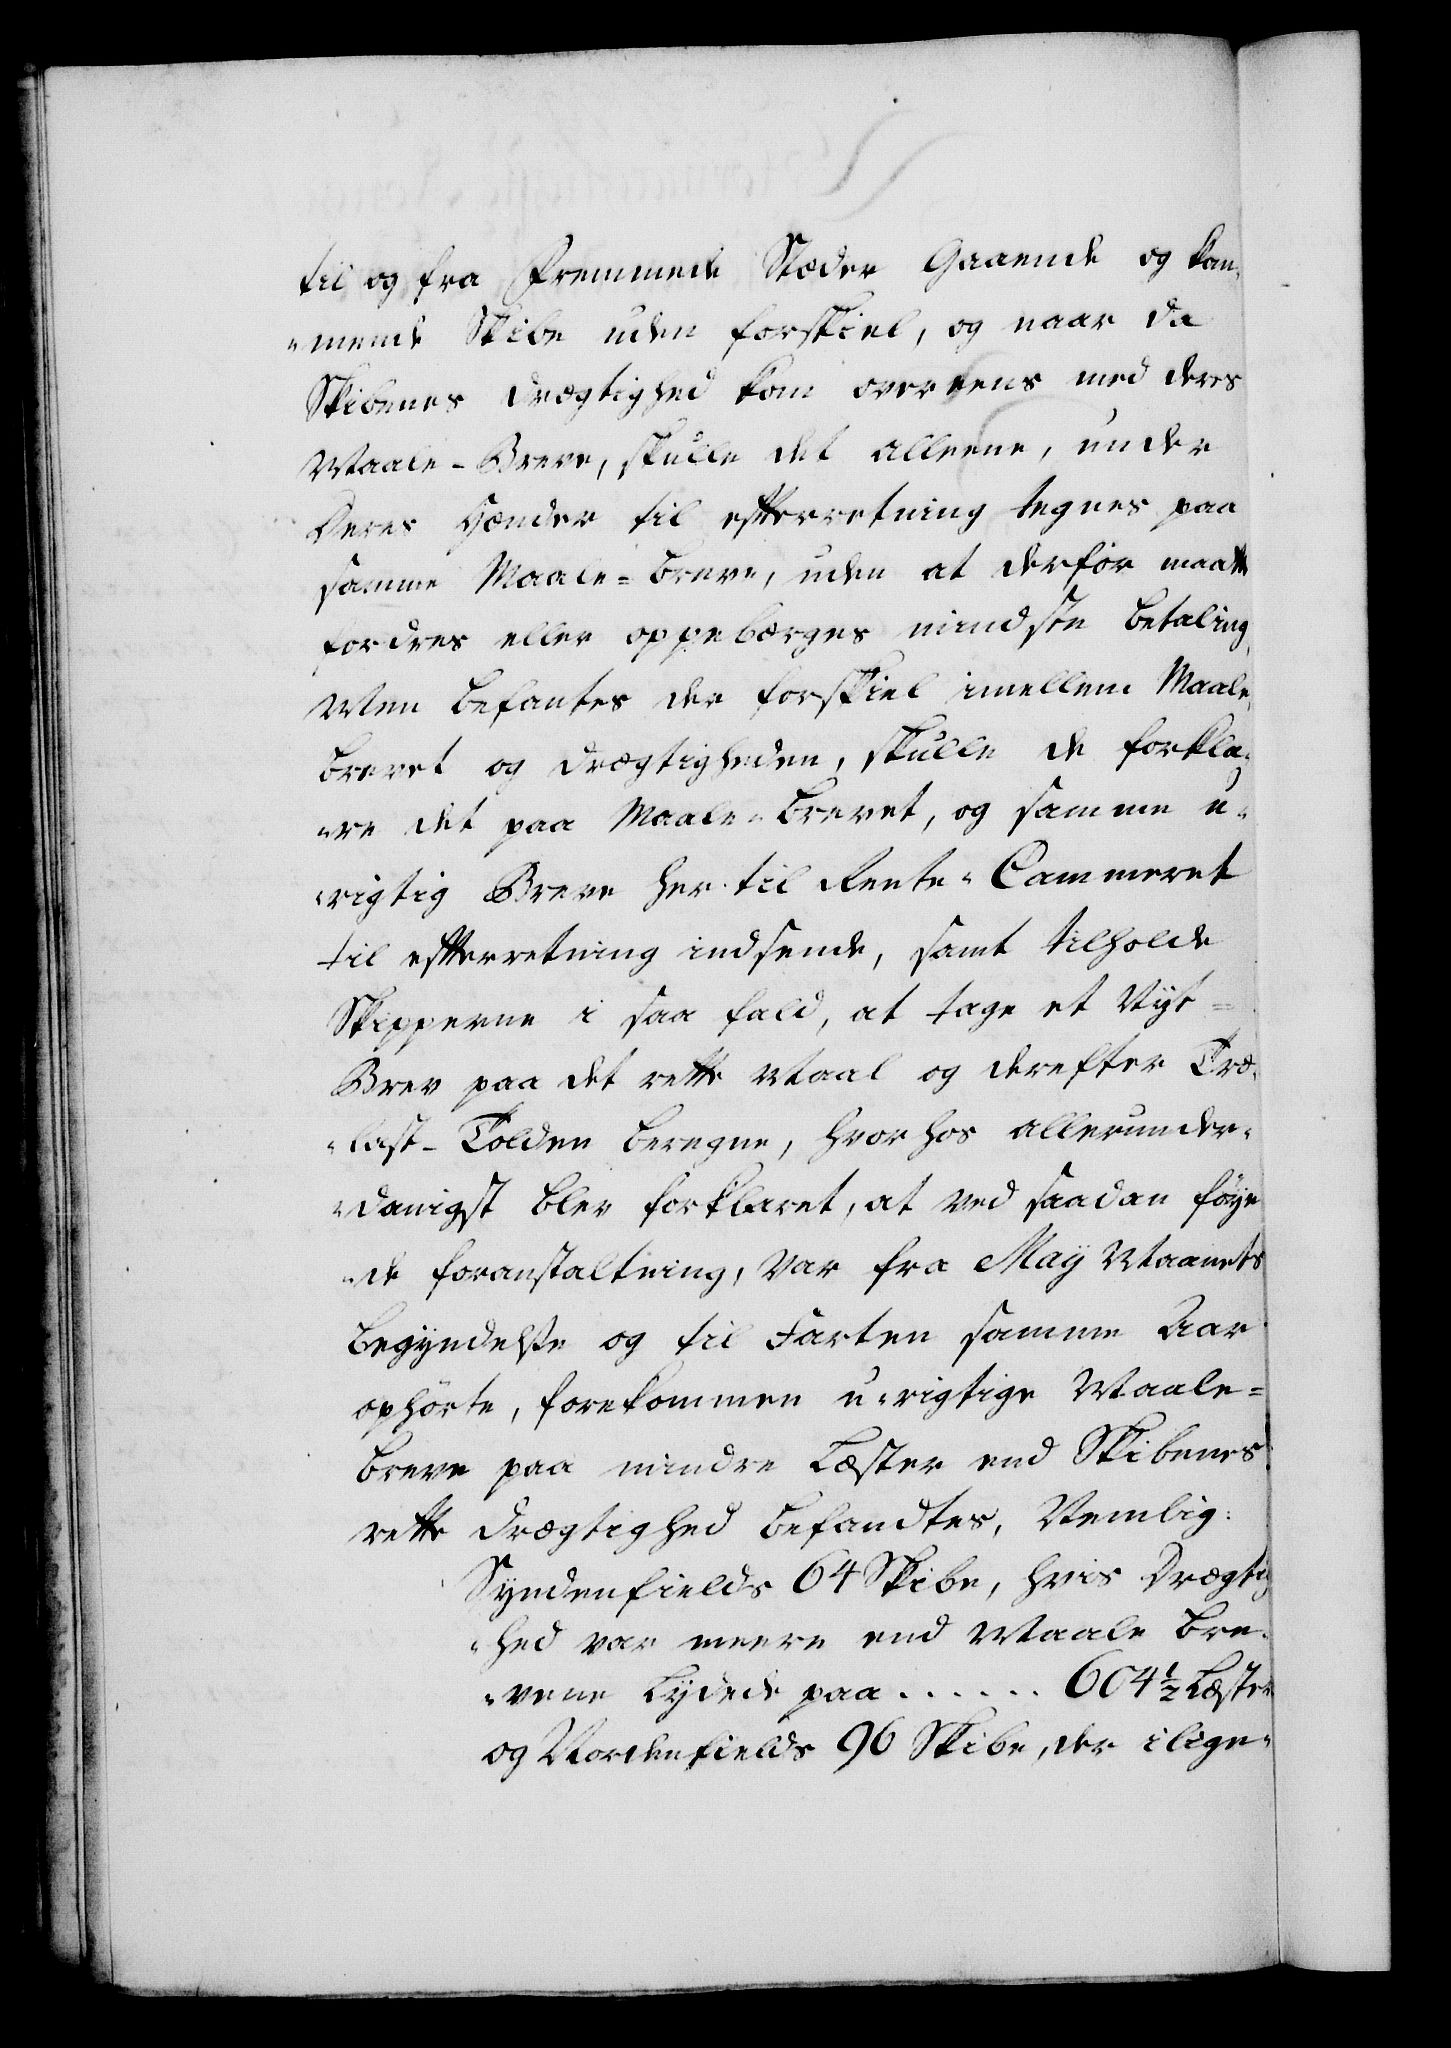 til og fra Fremmede Stæder Gaaende og kom-
-mende Skibe uden forskiel, og naar da
Skibenes drægtighed kom overeens med deres
Maale-Breve, skulle det alleene, under
Deres Hænder til efterretning tegnes paa
samme Maale-breve, uden at derfor maatte
fordres eller oppebærges mindste betaling,
Men befantes der forskiel imellem Maale-
brevet og drægtigheden, skulle de forkla-
-re det paa Maale-brevet, og samme u-
-rigtig Breve her til Rente-Cammeret
til efterretning indsende, samt tilholde
Skipperne i saa fald, at tage et Nyt-
Brev paa det rette Maal og derefter Træ-
-last-Tolden beregne, hvorhos allerunder-
-danigst blev forklaret, at ved saadan føye
-de foranstaltning, var fra May Maanets
begyndelse og til Farten samme Aar
ophørte, forekommen u-rigtige Maale-
breve paa mindre Læster end Skibenes
rette drægtighed befandtes, Nemlig:
Syndenfields 64 Skibe, hvis Drægtig
-hed var meere end Maale bre-
-vene lydede paa ...... 604½ Læster
og Nordenfields 96 Skibe, der ilige-